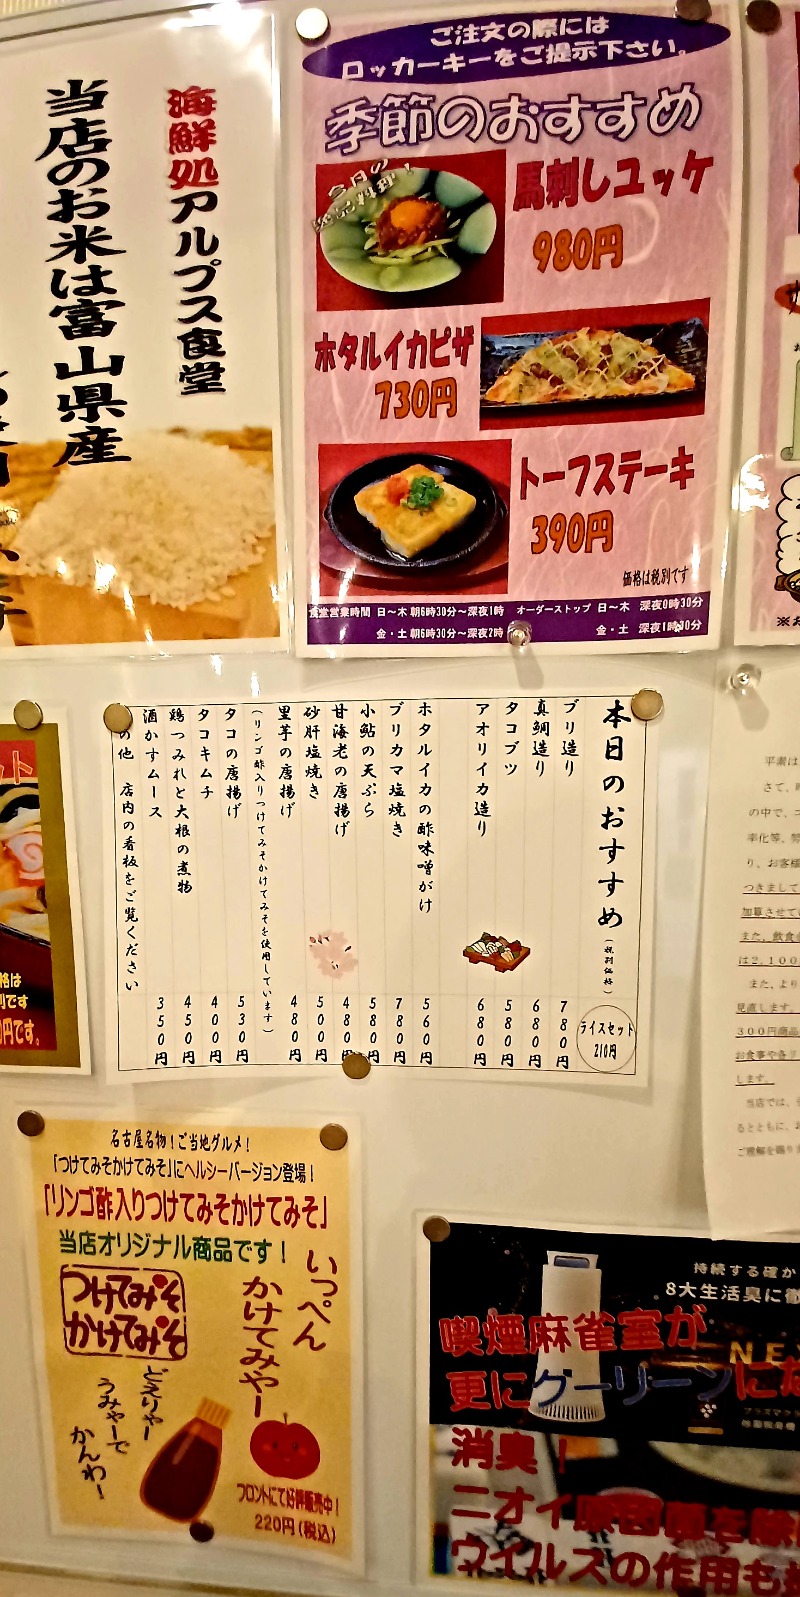 海鮮処アルプス食堂
当店のお米は富山県産
ご注文の際には
ロッカーキーをご提示下さい。
季節のおすすめ
今月の
逸品料理！
馬刺しユッケ
980円
ホタルイカピザ
730円
トーフステーキ
390円
価格は税別です
食堂営業時間 日〜木 朝6時30分〜深夜1時 オーダーストップ 日〜木 深夜0時30分
金・土 朝6時30分〜深夜2時 金・土 深夜1時30分
本日のおすすめ（税別価格）
ライスセット
210円
ブリ造り 780円
真鯛造り 680円
タコブツ 580円
アオリイカ造り 680円
ホタルイカの酢味噌がけ 560円
ブリカマ塩焼き 780円
小鮎の天ぷら 580円
甘海老の唐揚げ 480円
砂肝塩焼き 500円
里芋の唐揚げ 480円
（リンゴ酢入りつけてみそかけてみそを使用しています）
タコの唐揚げ 530円
タコキムチ 400円
鶏つみれと大根の煮物 450円
酒かすムース 350円
の他 店内の看板をご覧ください
格は
別です
円です。
平素は
さて、
の中で、
率化等、
り、お客様
つきまして
加算させて
また、飲食
は2，100
また、より
見直します。
300円商品
お食事や各
します。
当店では、
るとともに、お
ご理解を賜り
名古屋名物！ご当地グルメ！
「つけてみそかけてみそ」にヘルシーバージョン登場！
「リンゴ酢入りつけてみそかけてみそ」
当店オリジナル商品です！
つけてみそ
かけてみそ
いっぺん
かけてみやー
どえりゃー
うみゃーで
かんわー！
フロントにて好評販売中！
220円（税込）
持続する確か
8大生活臭に
NE
喫煙麻雀室が
更にクーリーンにな
消臭！
ニオイ原因菌を除
ウイルスの作用も